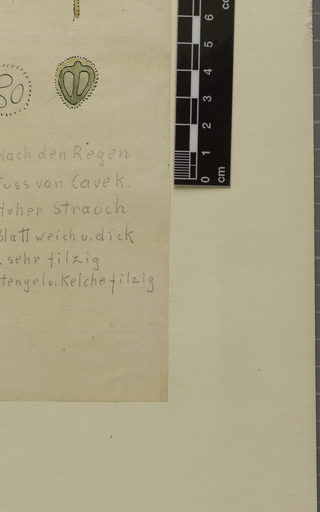 Nach den Regen
Fuss von Cavek.
Hoher Strauch
Blatt weich u. dick
. sehr filzig
tengel u. Kelche filzig
0 1 2 3 4 5 6
cm